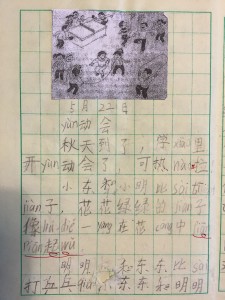 5月22日
yùn动会
秋天到了，学xiào里
开yùn动会了，可热nào啦
小东和小明比sài
jiàn子，花花绿绿的jiàn子
像hú dié一yàng在花cóng中
piān起wǔ
明明，和东东比sài
打乒乓qiú，东东和明明